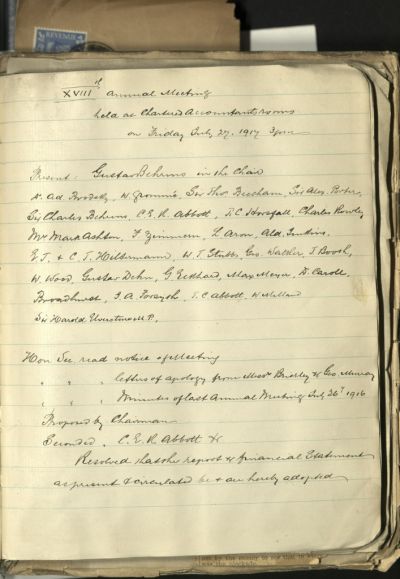 REVENUE
XVIIIth Annual Meeting
held at Chartered Accountants rooms
on Friday July 27. 1917 3pm
Present: Gustav Behrens in the Chair
Dr. Ad. Brodsky, W. Grommé, Sir Thos. Beecham, Sir Alex. Porter,
Sir Charles Behrens, C.E.R. Abbott, T.C. Horsfall, Charles Rowley,
Mrs Mark Ashton, F. Zimmern, L. Aron, Ald. Jenkins.
E.J. & C.T. Heltermann, W.T. Stubbs, Geo. Walker, J. Booth,
W. Wood, Gustav Dehn, G. Eckhard, Max Mayer, D. Caroll
Broadhurst, J.A. Forsyth, T.C. Abbott, W. Millard
Sir Harold M.P.,
Hon Sec. read notice of Meeting
" " " letters of apology from Messrs Brierley & Geo. Murray
" " " Minutes of last Annual Meeting July 26th 1916
Proposed by Chairman
Seconded " C.E.R. Abbott &
Resolved that the report & financial Statement
as present & circulated be & are hereby adopted